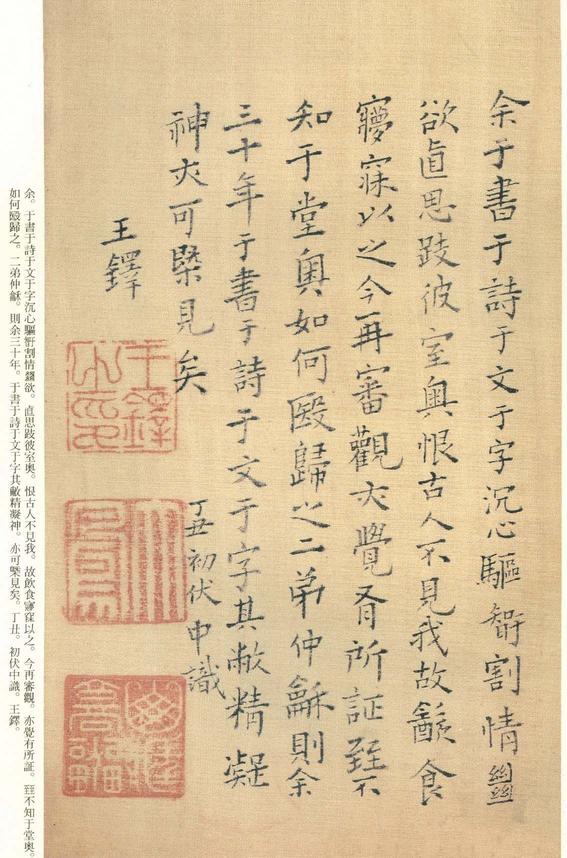 余于書于詩于文于字沉心驅智割情㡭
欲直思跂彼室奧恨古人不見我故飲食
寢寐以之今再審觀亦覺有所証至不
知于堂奧如何殹歸之二弟仲龢則余
三十年于書于詩于文于字其敝精凝
神亦可槩見矣
丁丑初伏中識
王鐸
王鐸
余。于書于詩于文于字沉心驅智割情㡭欲。直思跂彼室奧。恨古人不見我。故飲食寢寐以之。今再審觀。亦覺有所証。至不知于堂奧。
如何殹歸之。二弟仲龢。則余三十年。于書于詩于文于字其敝精凝神。亦可槩見矣。丁丑。初伏中識。王鐸。